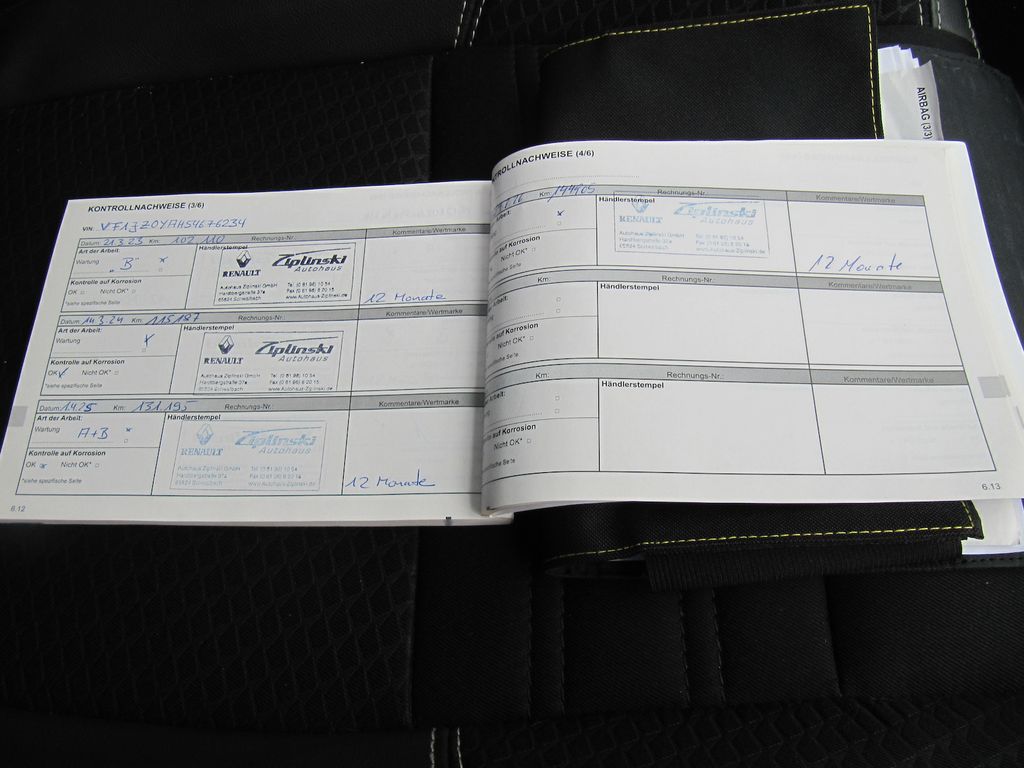 AIRBAG (3/3)
KONTROLLNACHWEISE (3/6)
VIN:
Datum: 21.3.23 Km: 102 110 Rechnungs-Nr. Kommentare/Wertmarke
Art der Arbeit: Händlerstempel
Wartung x
"B"
Kontrolle auf Korrosion
OK Nicht OK*
*siehe spezifische Seite
RENAULT Ziplinski
Autohaus
Autohaus Ziplinski GmbH Tel. (0 61 96) 10 34
Hardtbergstraße 37a Fax (0 61 96) 8 20 15
65824 Schwalbach www.Autohaus-Ziplinski.de
12 Monate
Datum: 14.3.24 Km: 115187 Rechnungs-Nr. Kommentare/Wertmarke
Art der Arbeit: Händlerstempel
Wartung
Kontrolle auf Korrosion
OK Nicht OK*
*siehe spezifische Seite
RENAULT Ziplinski
Autohaus
Autohaus Ziplinski GmbH Tel. (0 61 96) 10 34
Hardtbergstraße 37a Fax (0 61 96) 8 20 15
65824 Schwalbach www.Autohaus-Ziplinski.de
Datum: 1.4.25 Km: 131195 Rechnungs-Nr.: Kommentare/Wertmarke
Art der Arbeit: Händlerstempel
Wartung x
A+B
Kontrolle auf Korrosion
OK x Nicht OK*
*siehe spezifische Seite
RENAULT Ziplinski
Autohaus
Autohaus Ziplinski GmbH Tel. (0 61 96) 10 34
Hardtbergstraße 37a Fax (0 61 96) 8 20 15
65824 Schwalbach www.Autohaus-Ziplinski.de
12 Monate
6.12
TROLLNACHWEISE (4/6)
Km: 144905 Rechnungs-Nr. Kommentare/Wertmarke
Arbeit: Händlerstempel
x
e auf Korrosion
Nicht OK*
ezifische Seite
RENAULT Ziplinski
Autohaus
Autohaus Ziplinski GmbH Tel. (0 61 96) 10 34
Hardtbergstraße 37a Fax (0 61 96) 8 20 15
65824 Schwalbach www.Autohaus-Ziplinski.de
12 Monate
Km: Rechnungs-Nr.: Kommentare/Wertmarke
Arbeit: Händlerstempel
e auf Korrosion
Nicht OK*
ezifische Seite
Km: Rechnungs-Nr.: Kommentare/Wertmarke
Arbeit: Händlerstempel
e auf Korrosion
Nicht OK*
ezifische Seite
6.13